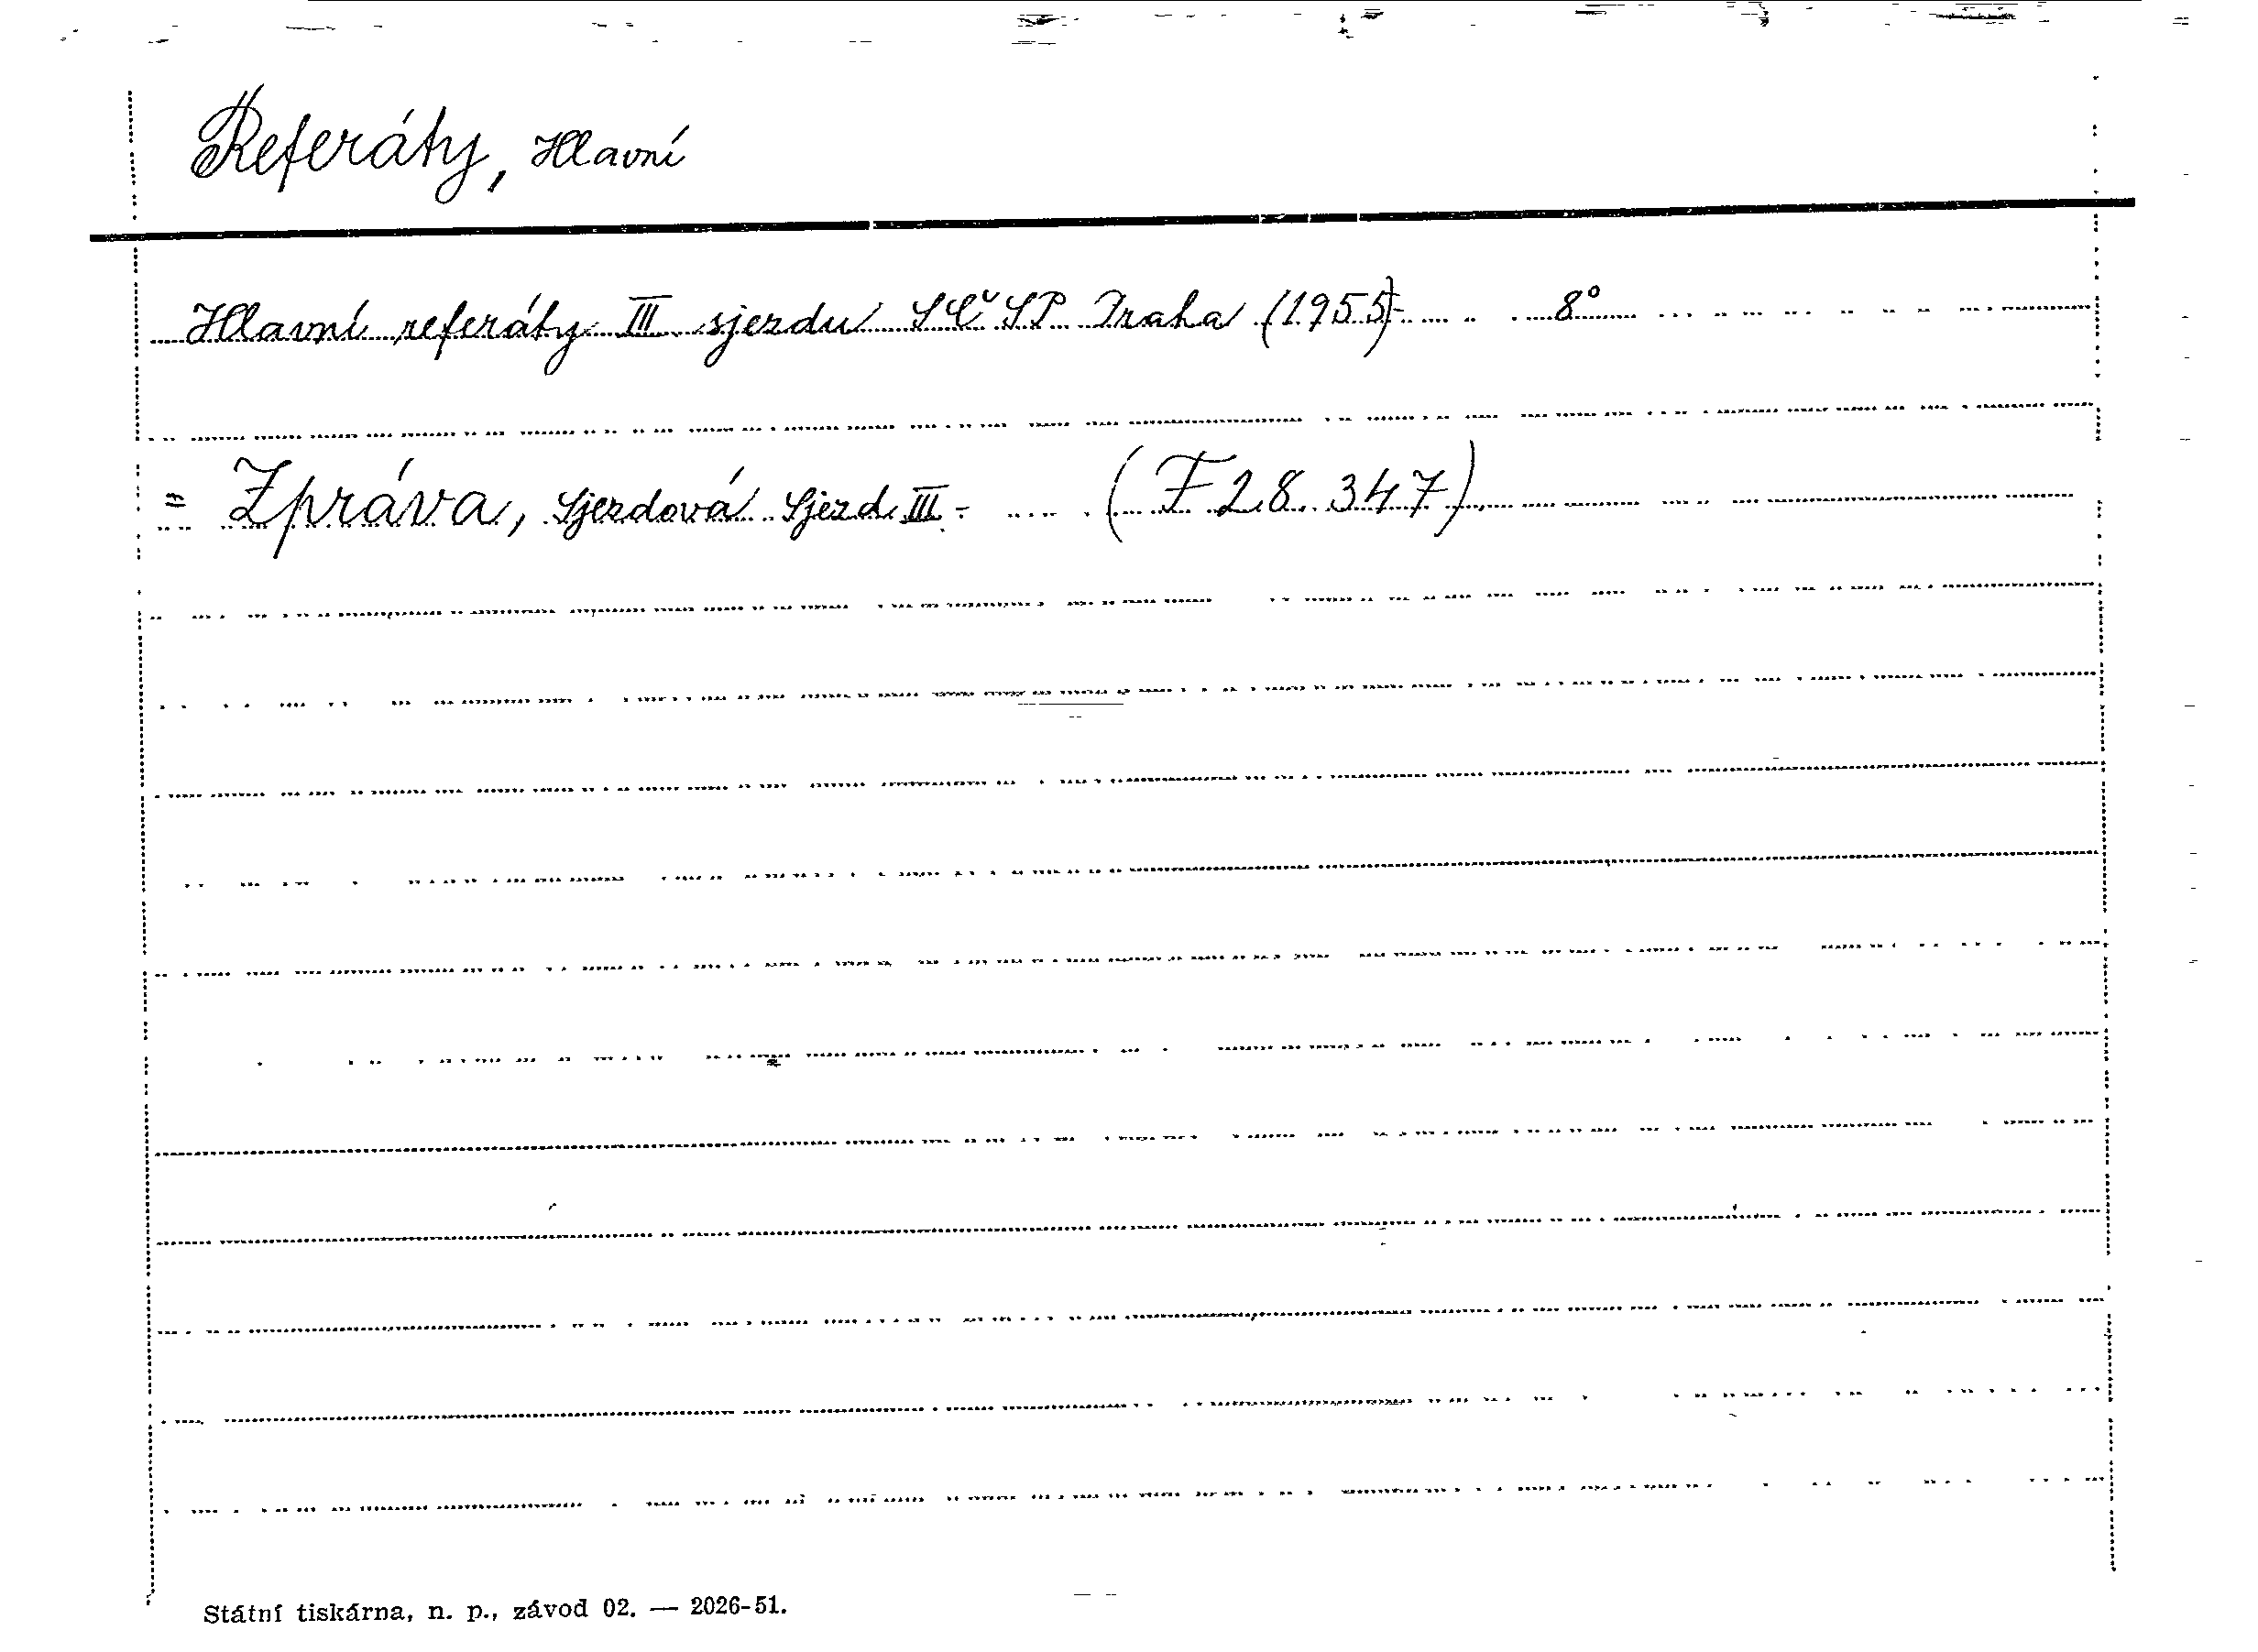 Referáty, Hlavní
Hlavní referáty III sjezdu SČSP Praha (1955)- 8°
= Zpráva, sjezdová Sjezd III- (F 28.347)
Státní tiskárna, n. p., závod 02. — 2026-51.